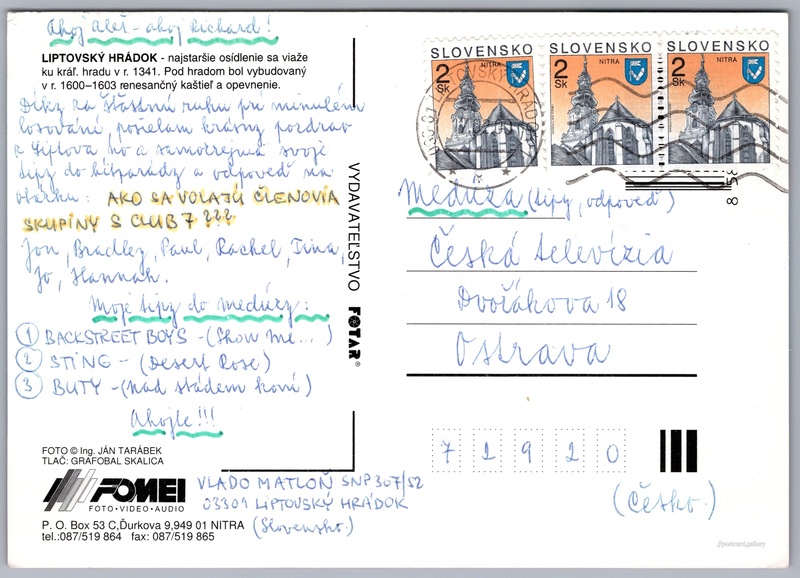 Ahoj Aleš - ahoj Richard!
LIPTOVSKÝ HRÁDOK - najstaršie osídlenie sa viaže
ku kráľ. hradu v r. 1341. Pod hradom bol vybudovaný
v r. 1600–1603 renesančný kaštieľ a opevnenie.
Díky za šťastnú ruku pri minulém
losování, posielam krásny pozdrav
z Liptova no a samozrejmä svoje
tipy do hitparády a odpoveď na
otázku: AKO SA VOLAJÚ ČLENOVIA
SKUPINY S CLUB 7 ???
Jon, Bradley, Paul, Rachel, Tina,
Jo, Hannah.
Moje tipy do medúzy:
1 BACKSTREET BOYS - (Show me...)
2 STING - (Desert Rose)
3 BUTY - (Nad stádem koní)
Ahojte!!!
FOTO © Ing. JÁN TARÁBEK
TLAČ: GRAFOBAL SKALICA
FOMEI
FOTO·VIDEO·AUDIO
P. O. Box 53 C,Ďurkova 9,949 01 NITRA
tel.:087/519 864 fax: 087/519 865
VLADO MATLOŇ SNP 307/52
03301 LIPTOVSKÝ HRÁDOK
(Slovensko.)
VYDAVATEĽSTVO FOTAR®
SLOVENSKO
NITRA
2 Sk
SLOVENSKO
NITRA
2 Sk
SLOVENSKO
NITRA
2 Sk
033 01 LIPTOVSKÝ HRÁDOK
8 58
Medúza (tipy, odpoveď)
Česká televízia
Dvořákova 18
Ostrava
71920
(Česko.)
//postcard.gallery